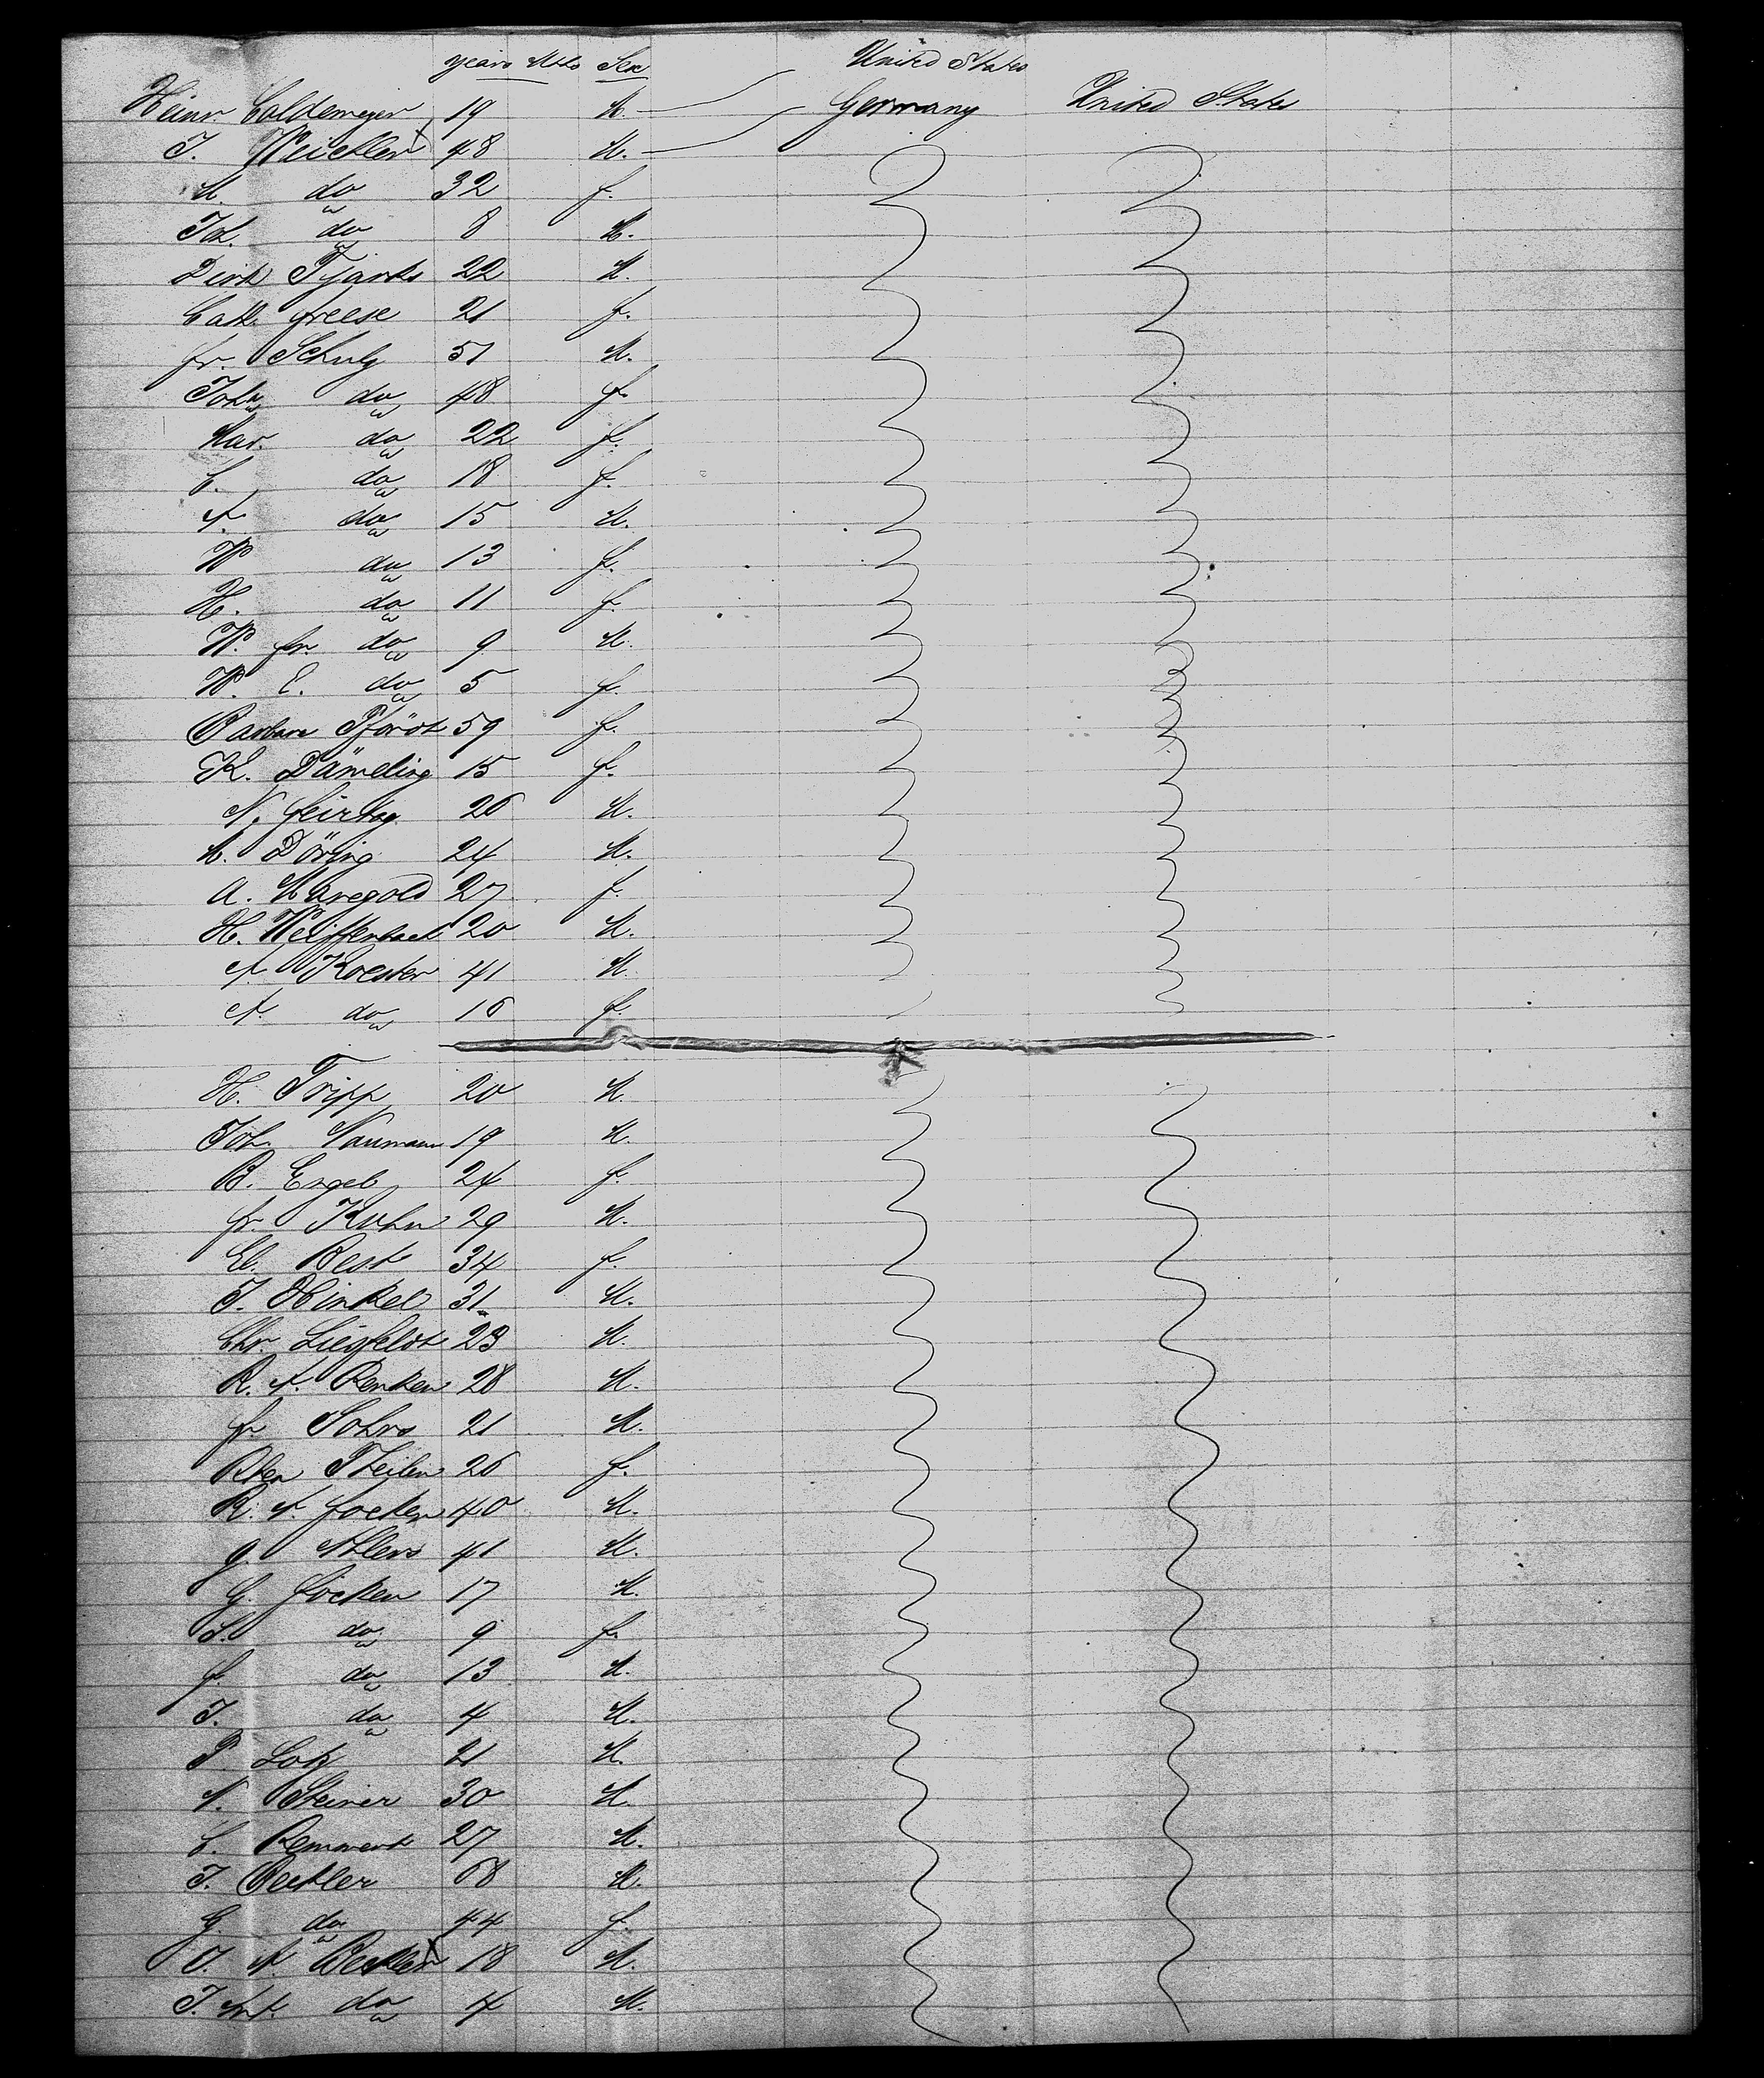 years Mths Sex United States
Heinr Coldemeyer 19 M. Germany United States
J. Weichler 48 M.
M. do 32 f.
Joh. do 8 M.
Dirk Tjarks 22 M.
Cath. freese 21 f.
fr. Schulz 51 M.
Joha do 48 f.
Mar. do 22 f.
C. do 18 f.
A. do 15 M.
W do 13 f.
H. do 11 f.
W. fr. do 9 M.
W. E. do 5 f.
Barbara 59 f.
K. Dämeling 15 f.
N. feirtag 26 M.
M. Döring 24 M.
A. Maregold 27 f.
H. Weiffenbach 20 M.
A. Koester 41 M.
A. do 16 f.
H. Tripp 20 M.
Joh. Naumann 19 M.
B. Engel 24 f.
fr. Kuhn 29 M.
El. Best 34 f.
J. Hinkel 31 M.
Chr. Liegfeldt 23 M.
R. A. Renken 28 M.
fr Sohrs 21 M.
Theilen 26 f.
R. A. focken 40 M.
g. Ahlers 41 M.
G. focken 17 M.
S. do 9 f.
f. do 13 M.
J. do 4 M.
P. Lotz 21 M.
N. Steiner 30 M.
C. Remmert 27 M.
J. Bechler 68 M.
G. do 44 f.
J. A. Bechler 18 M.
J. do 4 M.